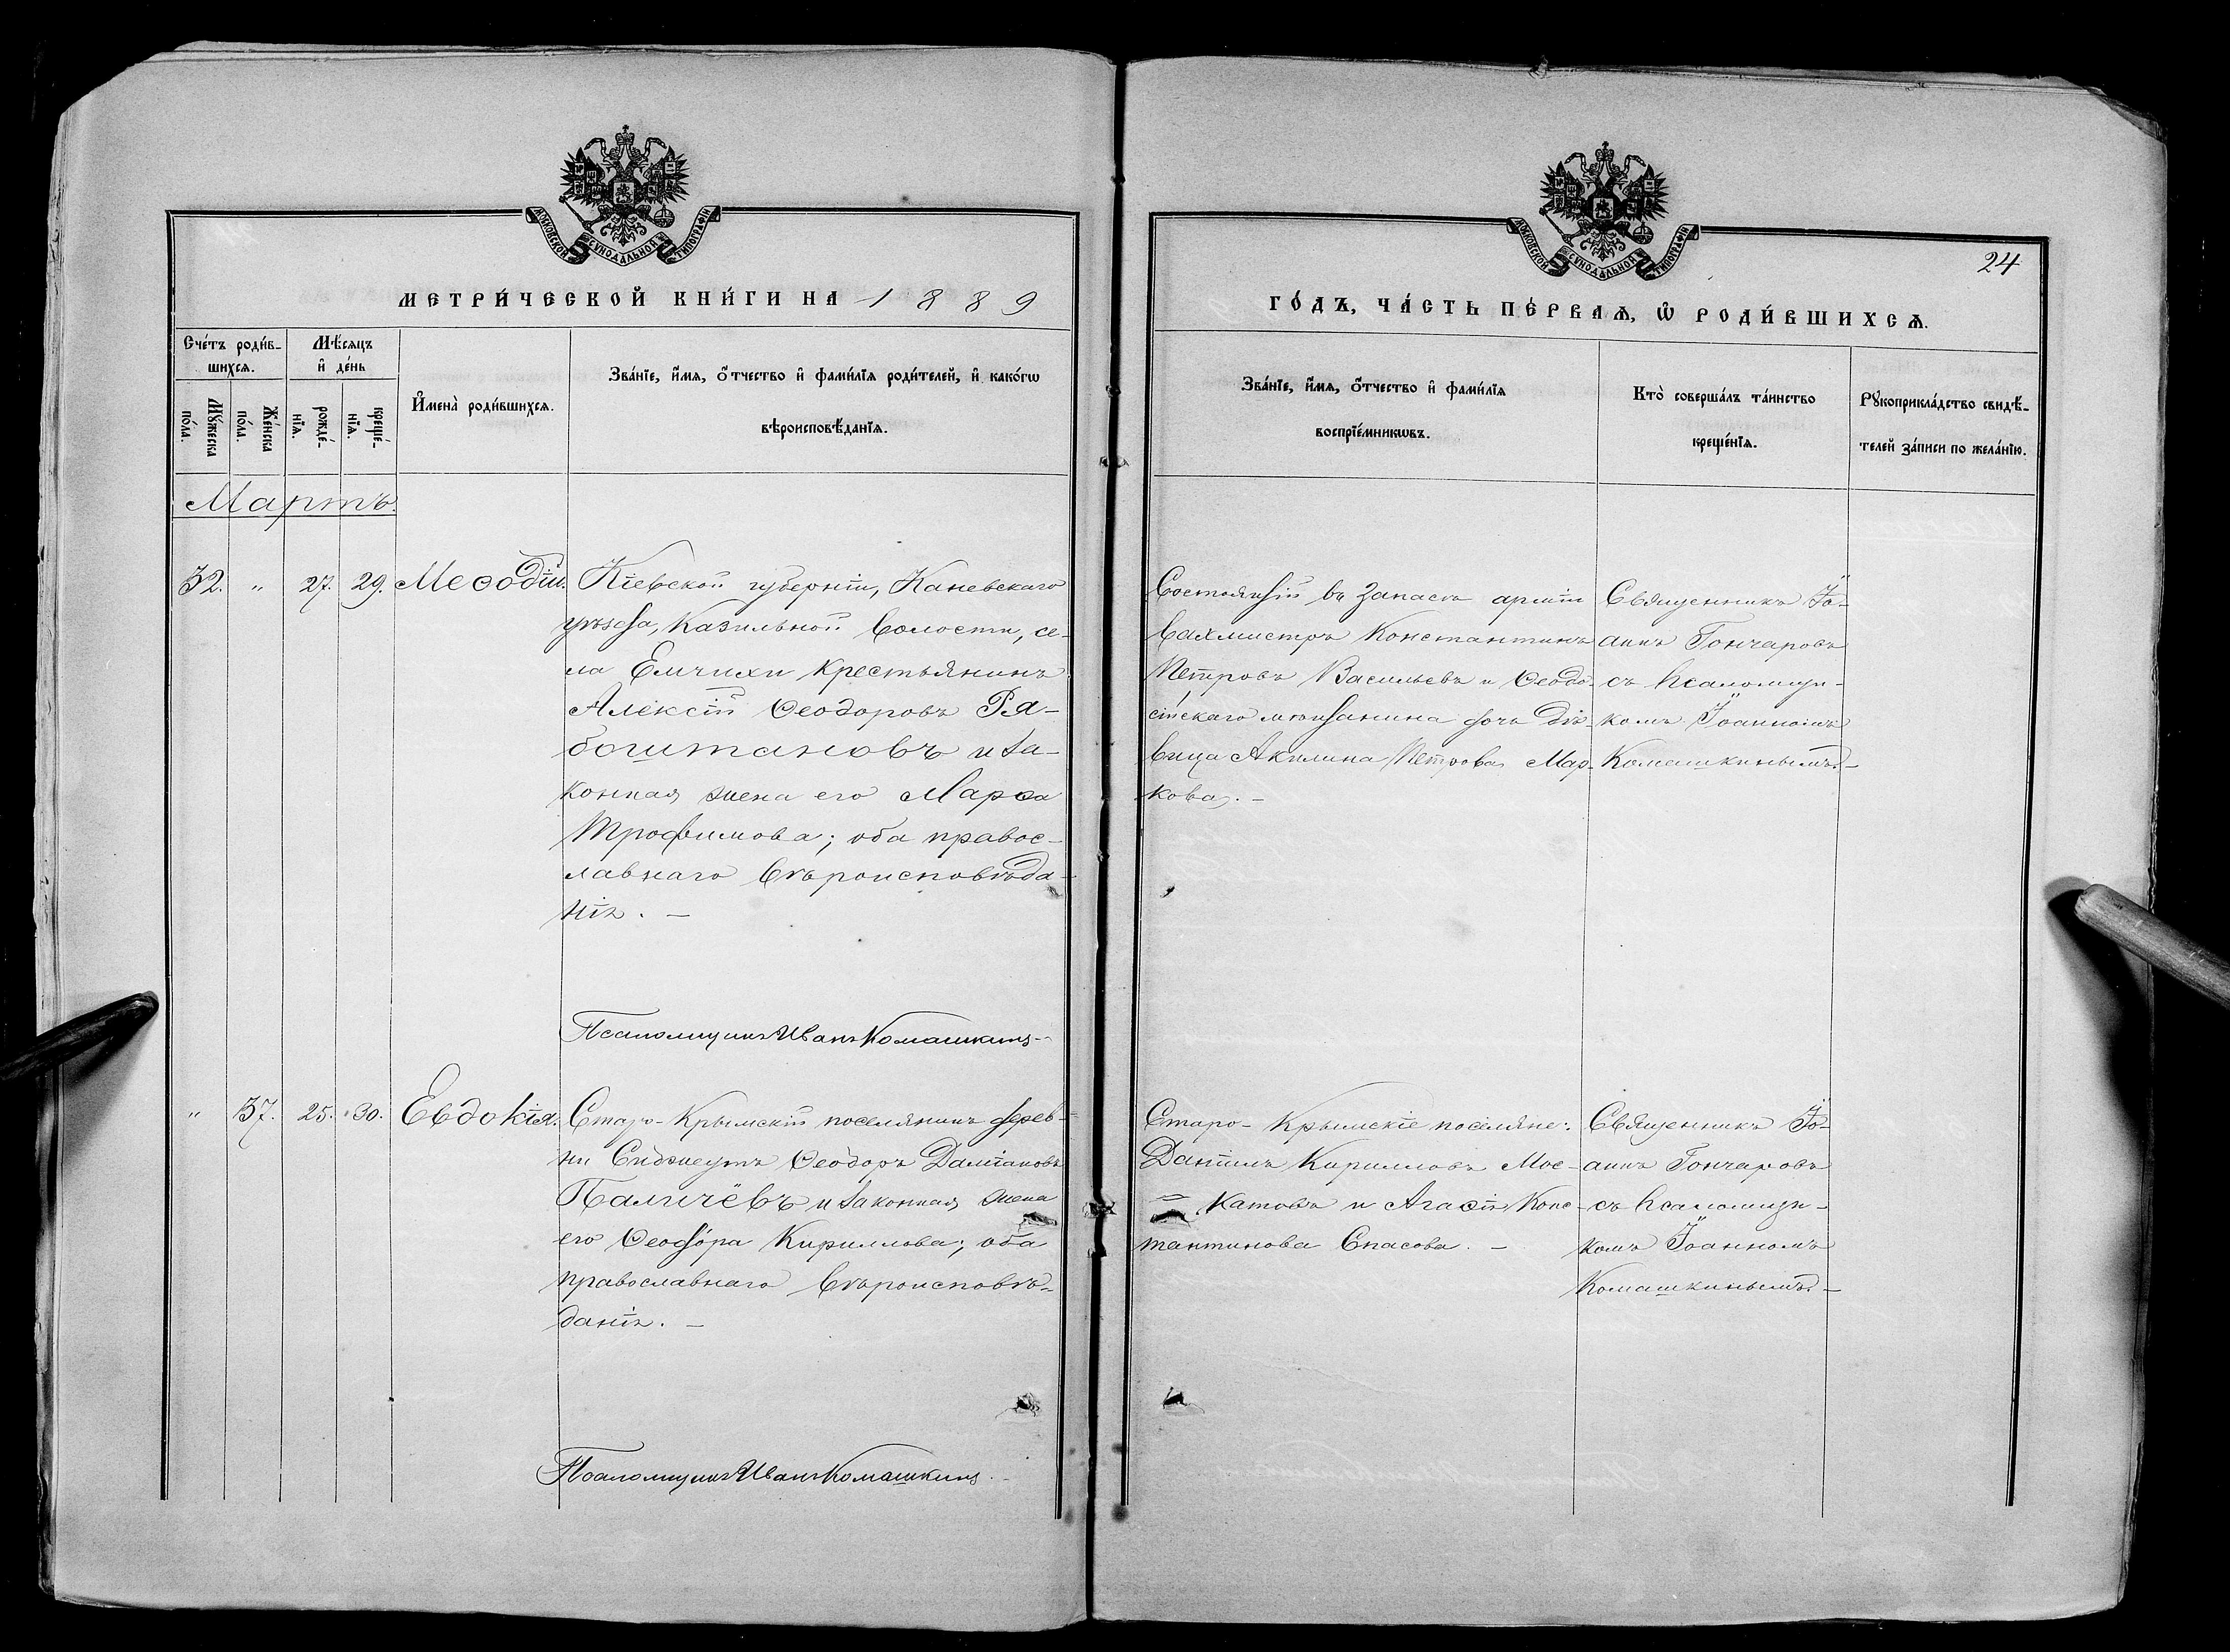 МОСКОВСКОЙ СѴНОДАЛЬНОЙ ТИПОГРАФІИ
МЕТРИ́ЧЕСКОЙ КНИ́ГИ НА 1889
Сче́тъ роди́в-
шихся.
Мꙋ́жеска
по́ла.
Же́нска
по́ла.
Мѣ́сяцъ
и҆ де́нь
рожде́-
нїѧ.
креще́-
нїѧ.
И҆мена̀ роди́вшихсѧ.
Зва́нїе, и҆́мѧ, ѻ҆́тчество и҆ фами́лїѧ роди́телей, и҆ како́гѡ
вѣроисповѣ́данїѧ.
Мартъ.
32. " 27. 29. Меѳодій.
Кіевской губерніи, Каневскаго
уѣзда, Казильной волости, се-
ла Емчихи крестьянинъ
Алексій Ѳеодоровъ Ря-
боштановъ и за-
конная жена его Марѳа
Трофимова; оба правос-
лавнаго вѣроисповѣда-
нія. —
Псаломщикъ Иванъ Комашкинъ
" 37. 25. 30. Евдокія.
Старо-Крымскій поселянинъ дерев-
ни Сиджеутъ Ѳеодоръ Даміановъ
Паличёвъ и законная жена
его Ѳеодо́ра Кириллова; оба
православнаго вѣроисповѣ-
данія. —
Псаломщикъ Иванъ Комашкинъ
МОСКОВСКОЙ СѴНОДАЛЬНОЙ ТИПОГРАФІИ
24
ГО́ДЪ, ЧА́СТЬ ПЕ́РВАѦ, Ѡ҆ РОДИ́ВШИХСѦ.
Зва́нїе, и҆́мѧ, ѻ҆́тчество и҆ фами́лїѧ
воспрїе́мникѡвъ.
Кто̀ соверша́лъ та́инство
креще́нїѧ.
Рꙋкоприкла́дство свидѣ́-
телей за́писи по жела́нїю.
Состоящій въ запасѣ арміи
вахмистръ Константинъ
Петровъ Васильевъ и Ѳеодо-
сійскаго мѣщанина дочь дѣ-
вица Акилина Петрова Мар-
кова. —
Священникъ Іо-
аннъ Гончаровъ
съ псаломщи-
комъ Іоанномъ
Комашкинымъ. —
Старо-Крымскіе поселяне:
Даніилъ Кирилловъ Мос-
катовъ и Агаѳія Конс-
тантинова Спасова. —
Священникъ Іо-
аннъ Гончаровъ
съ псаломщи-
комъ Іоанномъ
Комашкинымъ. —